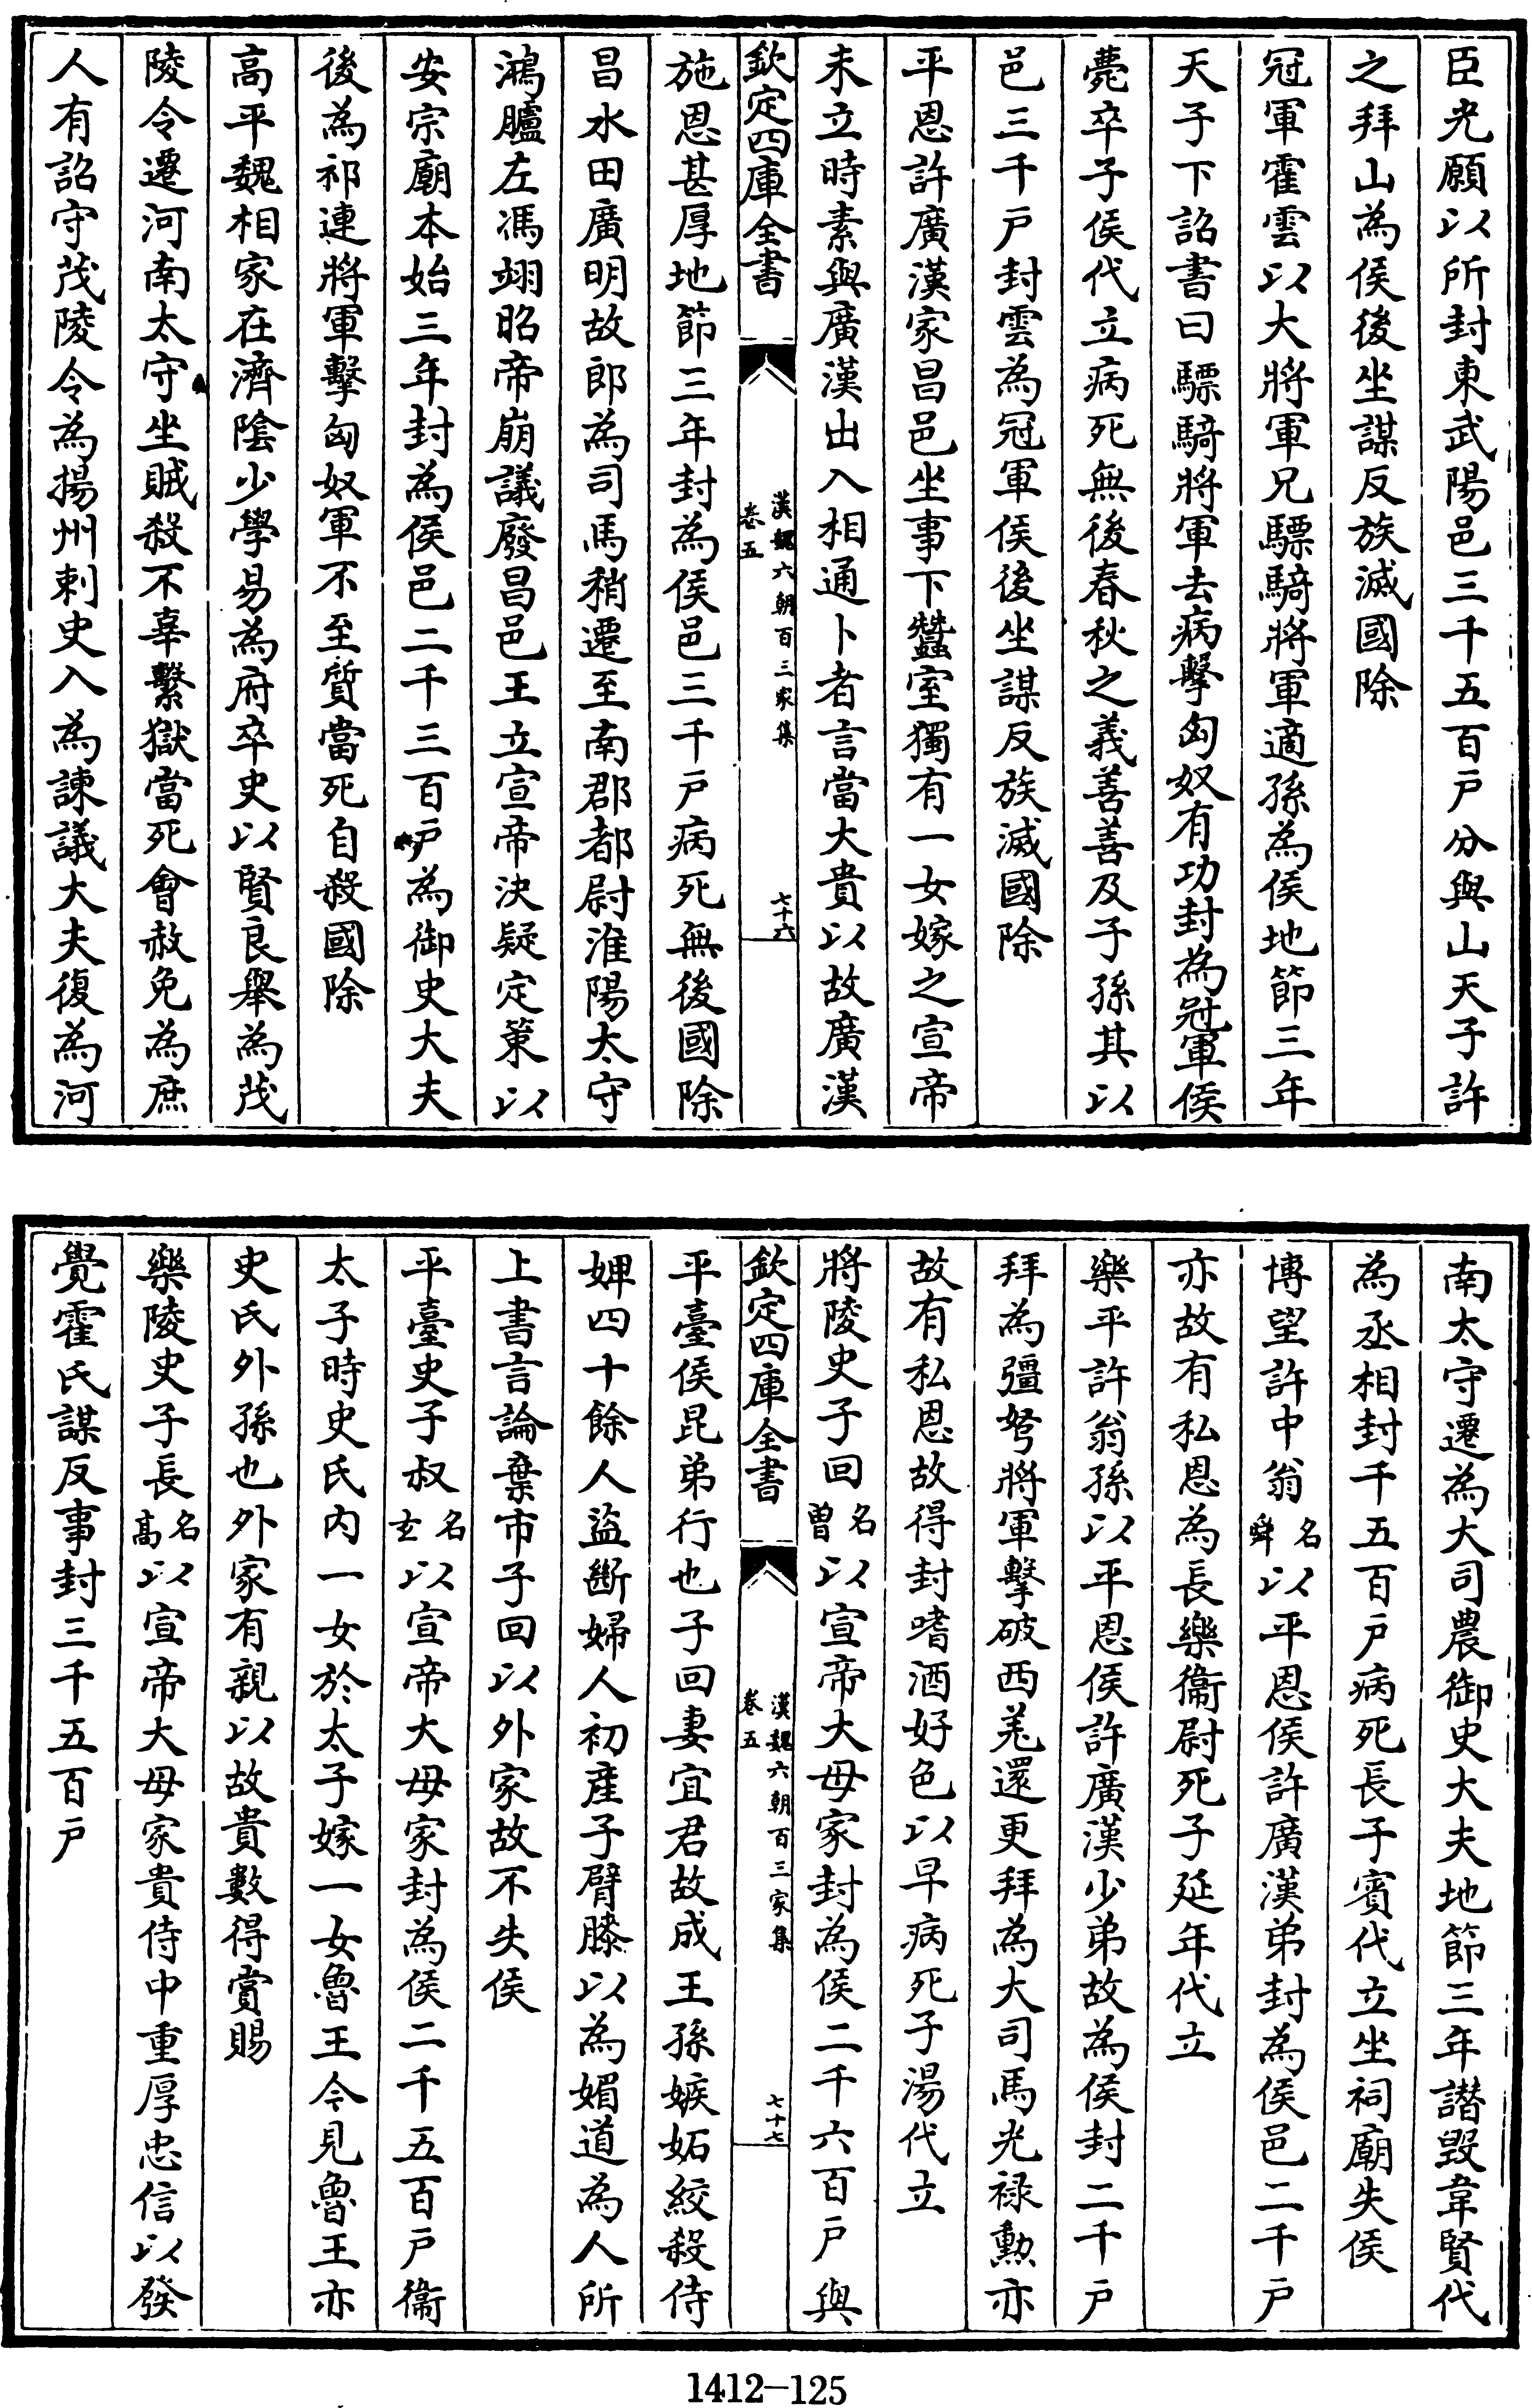 臣光願以所封東武陽邑三千五百戸分與山天子許
之拜山為侯後坐謀反族滅國除
冠軍霍雲以大將軍兄驃騎將軍適孫為侯地節三年
天子下詔書曰驃騎將軍去病擊匈奴有功封為冠軍侯
薨卒子侯代立病死無後春秋之義善善及子孫其以
邑三千戸封雲為冠軍侯後坐謀反族滅國除
平恩許廣漢家昌邑坐事下蠶室獨有一女嫁之宣帝
未立時素與廣漢出入相通卜者言當大貴以故廣漢
欽定四庫全書
漢魏六朝百三家集
卷五
七十六
施恩甚厚地節三年封為侯邑三千戸病死無後國除
昌水田廣明故郎為司馬稍遷至南郡都尉淮陽太守
鴻臚左馮翊昭帝崩議廢昌邑王立宣帝決疑定策以
安宗廟本始三年封為侯邑二千三百戸為御史大夫
後為祁連將軍擊匈奴軍不至質當死自殺國除
高平魏相家在濟陰少學易為府卒史以賢良舉為茂
陵令遷河南太守坐賊殺不辜繫獄當死會赦免為庶
人有詔守茂陵令為揚州刺史入為諫議大夫復為河
南太守遷為大司農御史大夫地節三年譖毀韋賢代
為丞相封千五百戸病死長子賓代立坐祠廟失侯
博望許中翁名舜以平恩侯許廣漢弟封為侯邑二千戸
亦故有私恩為長樂衞尉死子延年代立
樂平許翁孫以平恩侯許廣漢少弟故為侯封二千戸
拜為彊弩將軍擊破西羌還更拜為大司馬光祿勲亦
故有私恩故得封嗜酒好色以早病死子湯代立
將陵史子回名曽以宣帝大母家封為侯二千六百戸與
欽定四庫全書
漢魏六朝百三家集
卷五
七十七
平臺侯昆弟行也子回妻宜君故成王孫嫉妬絞殺侍
婢四十餘人盜斷婦人初產子臂膝以為媚道為人所
上書言論棄市子回以外家故不失侯
平臺史子叔名𤣥以宣帝大母家封為侯二千五百戸衞
太子時史氏內一女於太子嫁一女魯王今見魯王亦
史氏外孫也外家有親以故貴數得賞賜
樂陵史子長名高以宣帝大母家貴侍中重厚忠信以發
覺霍氏謀反事封三千五百戸
1412-125